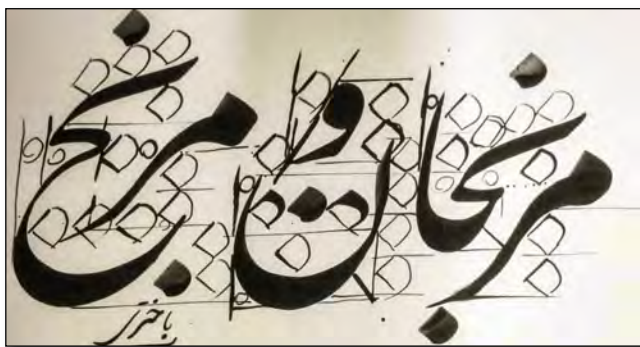 مرنجان و مرنج
باختری